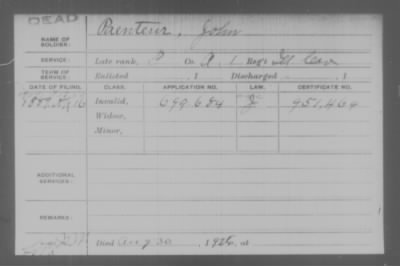 DEAD
NAME OF SOLDIER: Prenteur, John
SERVICE: Late rank, P Co. A, 1 Reg't Ill Cav
TERM OF SERVICE: Enlisted , 1 Discharged , 1
DATE OF FILING. CLASS. APPLICATION NO. LAW. CERTIFICATE NO.
Invalid, 699.684 951,464
Widow,
Minor,
ADDITIONAL SERVICES:
REMARKS:
Died Aug 30 , 192 , at